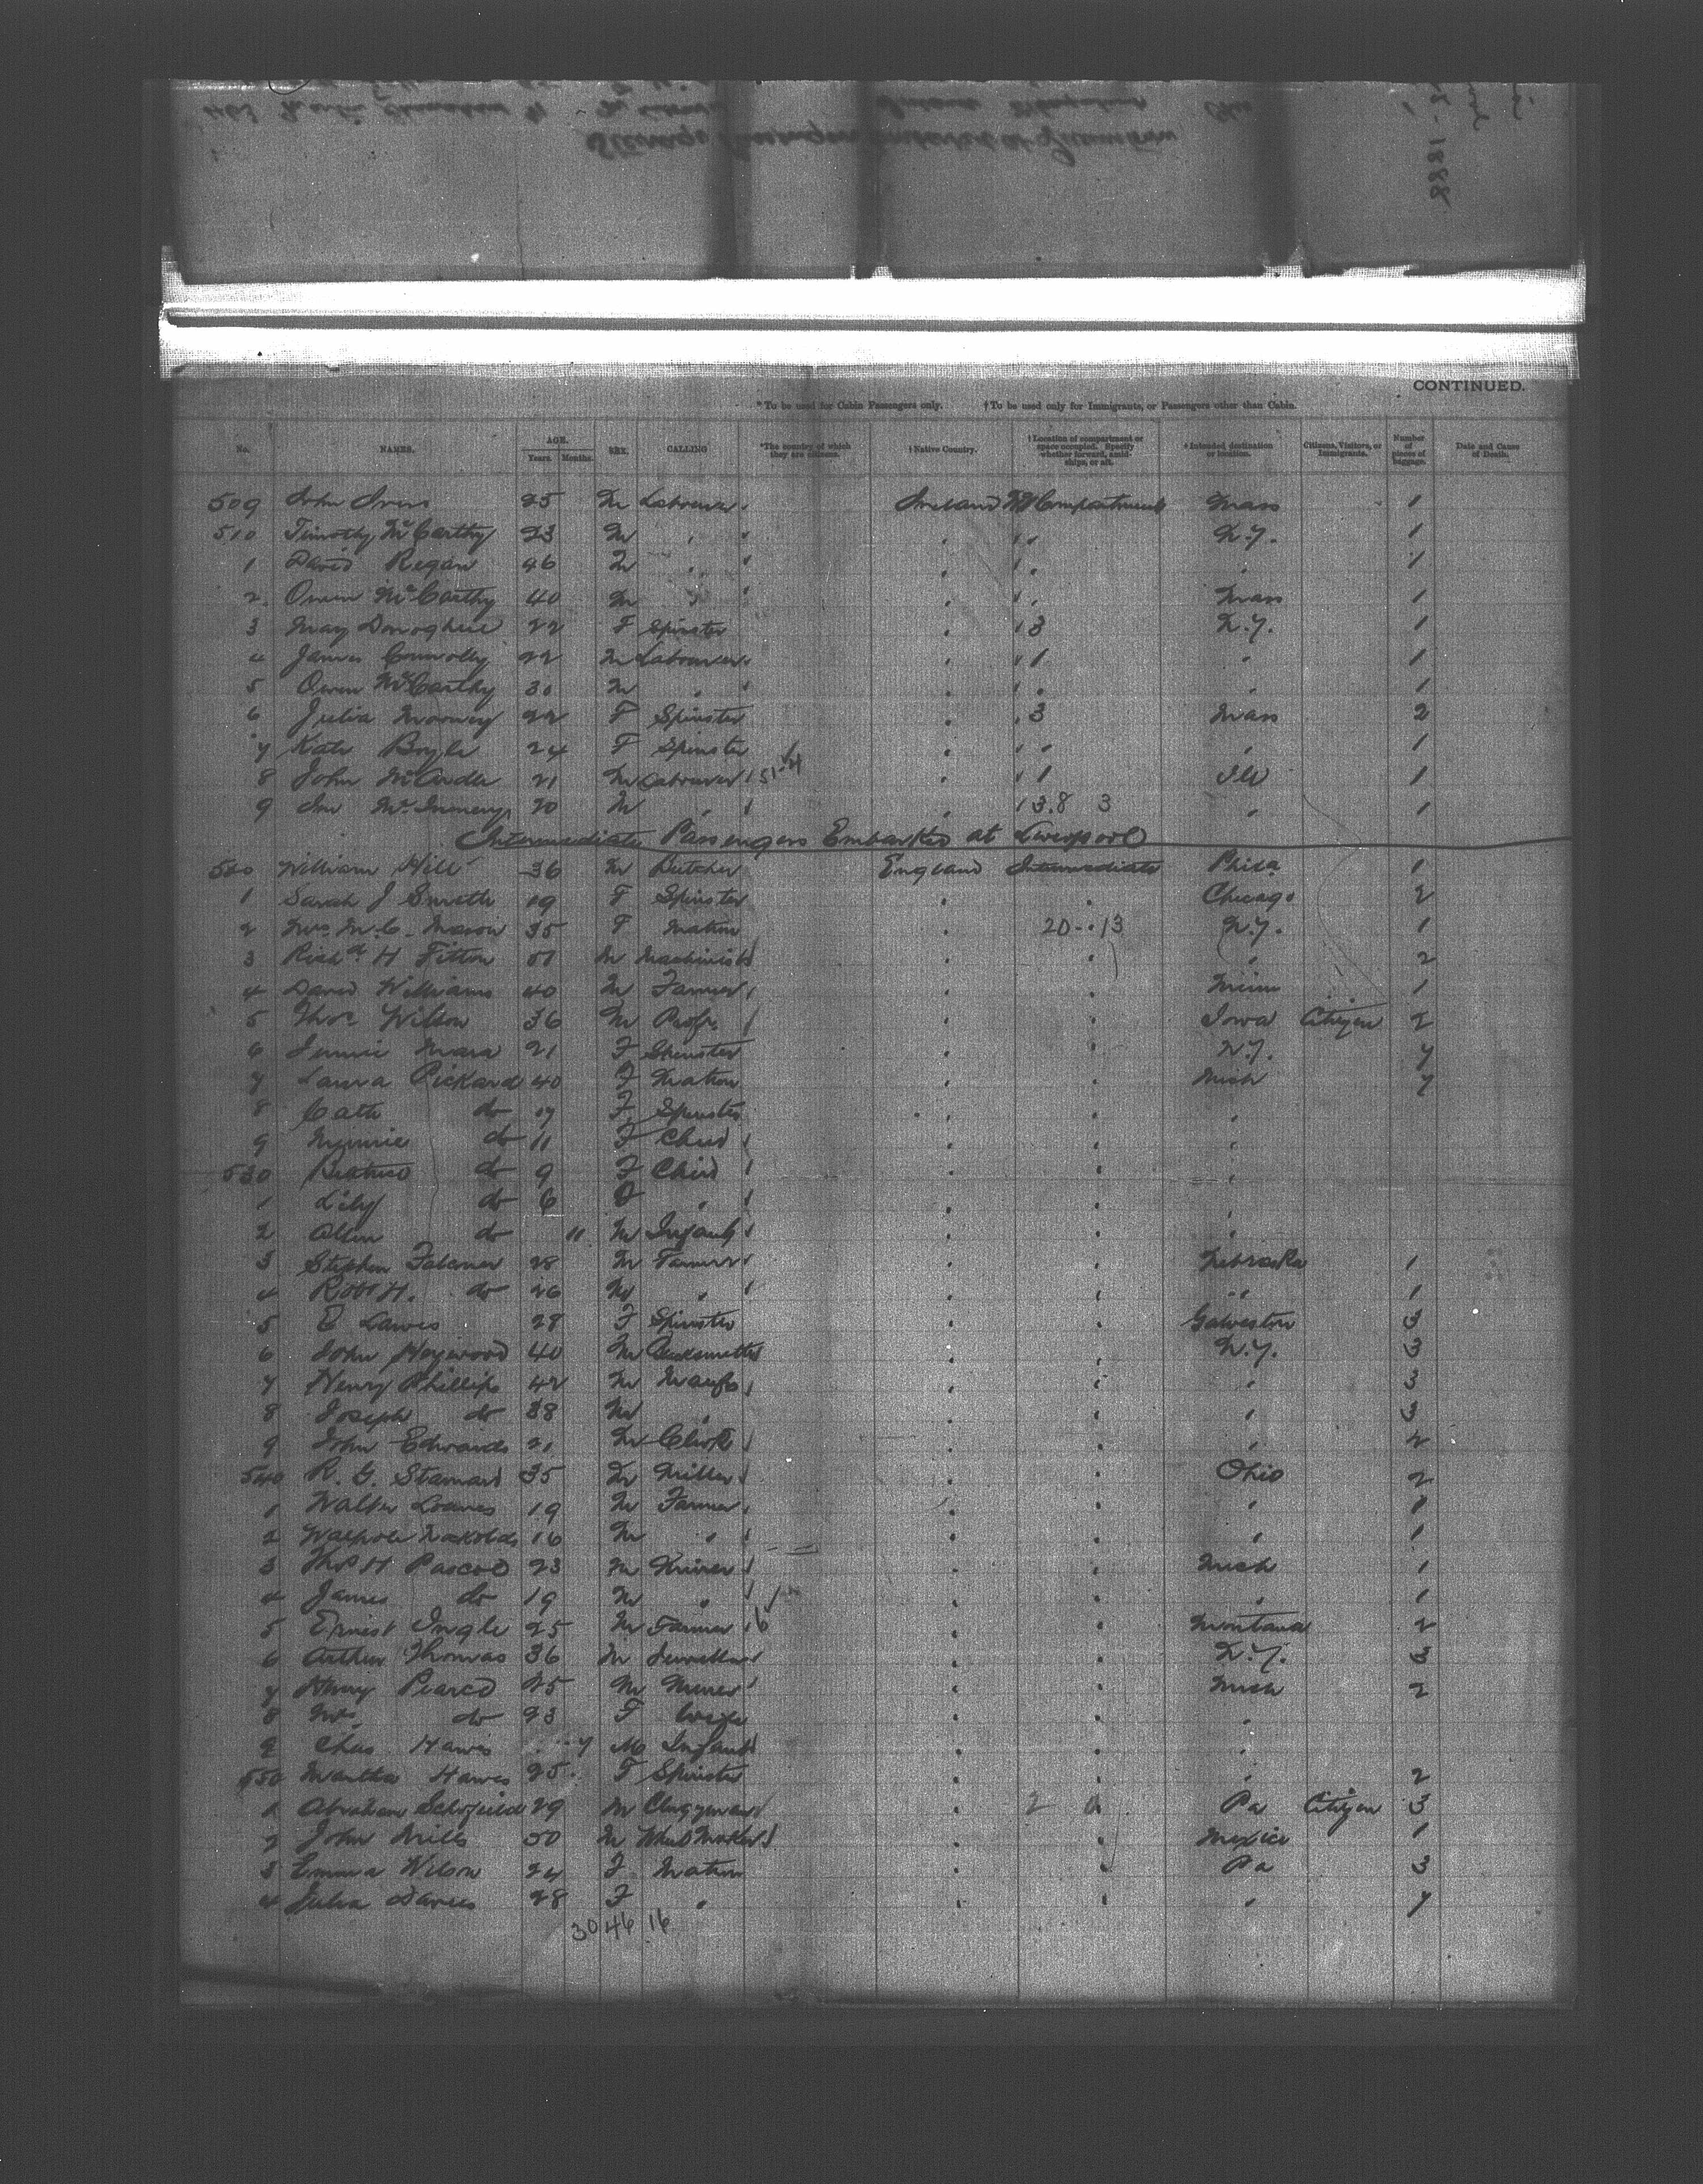 1888
CONTINUED.
*To be used for Cabin Passengers only. †To be used only for Immigrants, or Passengers other than Cabin.
No. NAMES. AGE. Years. Months. SEX. CALLING *The country of which they are citizens. †Native Country. †Location of compartment or space occupied. Specify whether forward, amidships, or aft. *Intended destination or location. Citizens, Visitors, or Immigrants. Number of pieces of baggage. Date and Cause of Death.
509 John 25 M Labourer Ireland Compartment Mass 1
510 Timothy McCarthy 23 M " " " N.Y. 1
1 David Regan 46 M " " " " 1
2 Owen McCarthy 40 M " " " Mass 1
3 May Donoghue 22 F Spinster " " 3 N.Y. 1
4 James Connolly 22 M Labourer " " 1 " 1
5 Owen McCarthy 30 M " " " " 1
6 Julia Mooney 22 F Spinster " " 3 Mass 2
7 Kate Boyle 24 F Spinster " " " " 1
8 John McArdle 21 M Labourer " " 1 Ill 1
9 20 M " " 3 " 1
Intermediate Passengers Embarked at Liverpool
520 William Hill 36 M Butcher England Intermediate Phila 1
1 Sarah J Smith 19 F Spinster " " Chicago 2
2 Mrs. M. C. Mason 35 F Matron " 20 " 13 N.Y. 1
3 Richd H Fitton 51 M Machinist " " " 2
4 David Williams 40 M Farmer " " Minn 1
5 Thos Wilson 36 M Profr " " Iowa Citizen 2
6 Jennie Mara 21 F Spinster " " N.Y. 7
7 Laura Pickard 40 F Matron " " Mich 7
8 Cath do 17 F Spinster " " "
9 Minnie do 11 F Child " " "
530 Beatrice do 9 F Child " " "
1 Lily do 6 F " " " "
2 Allen do 11 M Infant " " "
3 Stephen Falconer 28 M Farmer " " Nebraska 1
4 Robt H. do 26 M " " " " 1
5 E Lawes 28 F Spinster " " Galveston 3
6 John Heywood 40 M " " N.Y. 3
7 Henry Phillips 42 M Manufr " " " 3
8 Joseph do 38 M " " " " 3
9 John Edwards 21 M Clerk " " " 2
540 R. G. Stannard 35 M Miller " " Ohio 2
1 Walter Loames 19 M Farmer " " " 1
2 Walpole 16 M " " " " 1
3 Thos H Pascoe 23 M Miner " " Mich 1
4 James do 19 M " " " " 1
5 Ernest Ingle 25 M Farmer " " Montana 2
6 Arthur Thomas 36 M Jeweller " " N.Y. 3
7 Henry Pearce 25 M Miner " " Mich 2
8 Mrs. do 23 F Wife " " "
9 Chas Hawes 7 M Infant " " "
550 Martha Hawes 25 F Spinster " " " 2
1 Abraham Schofield 29 M Clergyman " 2 Pa Citizen 3
2 John Mills 50 M " " Mexico 1
3 Emma Wilson 24 F Matron " " Pa 3
4 Julia Davies 28 F " " " " 7
30 46 16